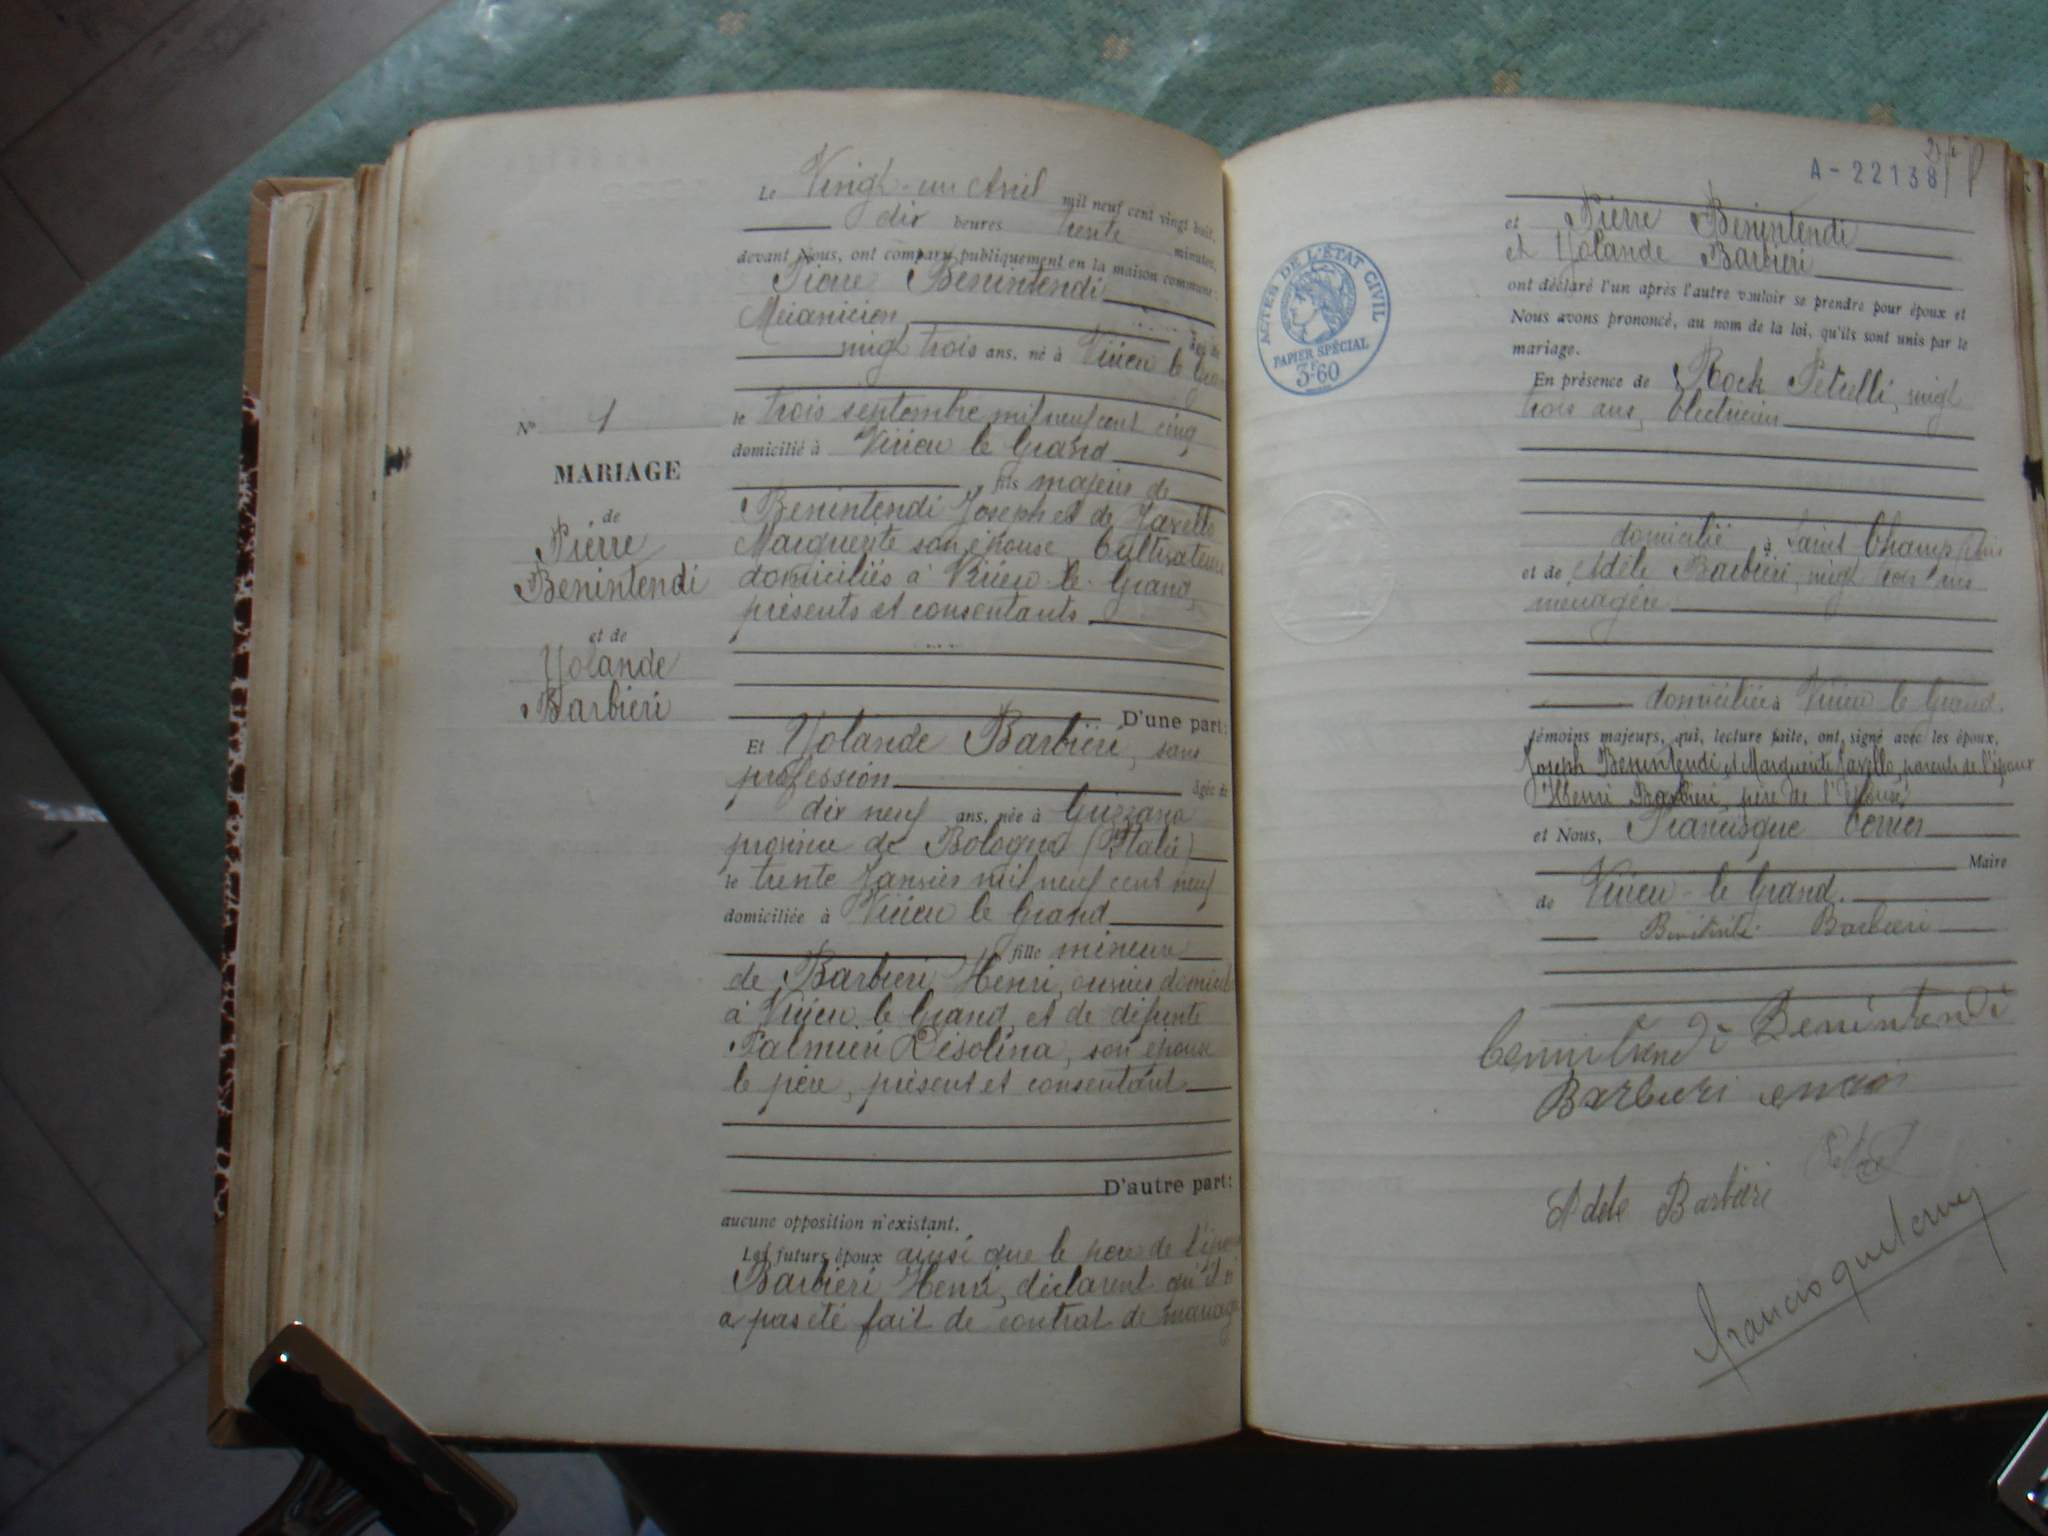 Le Vingt-un Avril mil neuf cent vingt huit,
dix heures trente minutes,
devant Nous, ont comparu publiquement en la maison commune:
Pierre Benintendi
Mécanicien âgé de
vingt trois ans, né à Virieu le
le trois septembre mil neuf cent cinq
domicilié à Virieu le Grand
, fils majeur de
Benintendi Joseph et de Javello
Marguerite son épouse, Cultivateurs
domiciliés à Virieu-le-Grand,
présents et consentants
D'une part:
Et Yolande Barbieri, sans
profession âgée de
dix neuf ans, née à Guzzano
province de Bologna (Italie)
le trente Janvier mil neuf cent neuf
domiciliée à Virieu le Grand
, fille mineure
de Barbieri Henri, ouvrier
à Virieu le Grand, et de défunte
Palmieri Désolina, son épouse
le père, présent et consentant
D'autre part:
aucune opposition n'existant.
Les futurs époux ainsi que le père de
Barbieri Henri, déclarent qu'il n'
a pas été fait de contrat de mariage
N° 1
MARIAGE
de
Pierre
Benintendi
et de
Yolande
Barbieri
A-22138
et Pierre Benintendi
et Yolande Barbieri
ont déclaré l'un après l'autre vouloir se prendre pour époux et
Nous avons prononcé, au nom de la loi, qu'ils sont unis par le
mariage.
En présence de Roch Petrelli, vingt
trois ans, Electricien
domicilié à Saint Champ
et de Adèle Barbieri, vingt trois ans
ménagère
domiciliée à Virieu le Grand.
témoins majeurs, qui, lecture faite, ont signé avec les époux,
Joseph Benintendi et Marguerite Javello, parents de l'époux
Henri Barbieri, père de l'épouse
et Nous, Francisque
Maire
de Virieu-le Grand.
Barbieri
Benintendi
Barbieri
Adele Barbieri
ACTES DE L'ÉTAT CIVIL
PAPIER SPÉCIAL
3F60